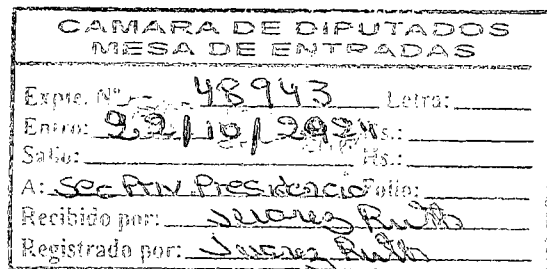 CAMARA DE DIPUTADOS
MESA DE ENTRADAS
Expte. Nº 48943 Letra:
Entro: 22/10/2024 Hs.:
Salio: Hs.:
A: Sec Priv Presidencia Folio:
Recibido por: Juarez Ruth
Registrado por: Juarez Ruth